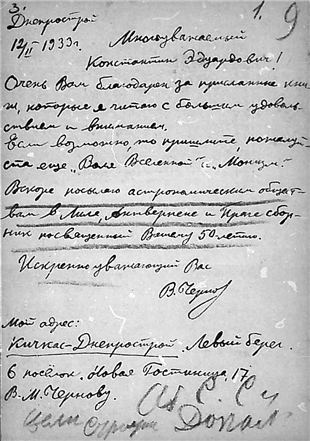 3. 1. 9
Днепрострой
12/II 1933 г. Многоуважаемый
Константин Эдуардович!
Очень Вам благодарен за присланные кни-
ги, которые я читаю с большим удоволь-
ствием и вниманием.
Если возможно, то пришлите, пожалуй-
ста еще, "Воля Вселенной" и "Монизм"
Вскоре посылаю астрономическим общест-
вам в Лилле, Антверпене и Праге сбор-
ник посвященный Вашему 50-летию.
Искренно уважающий Вас
В. Чернов
Мой адрес:
Кичкас-Днепрострой. Левый берег.
6 посёлок. Новая Гостиница, 17
В. М. Чернову.